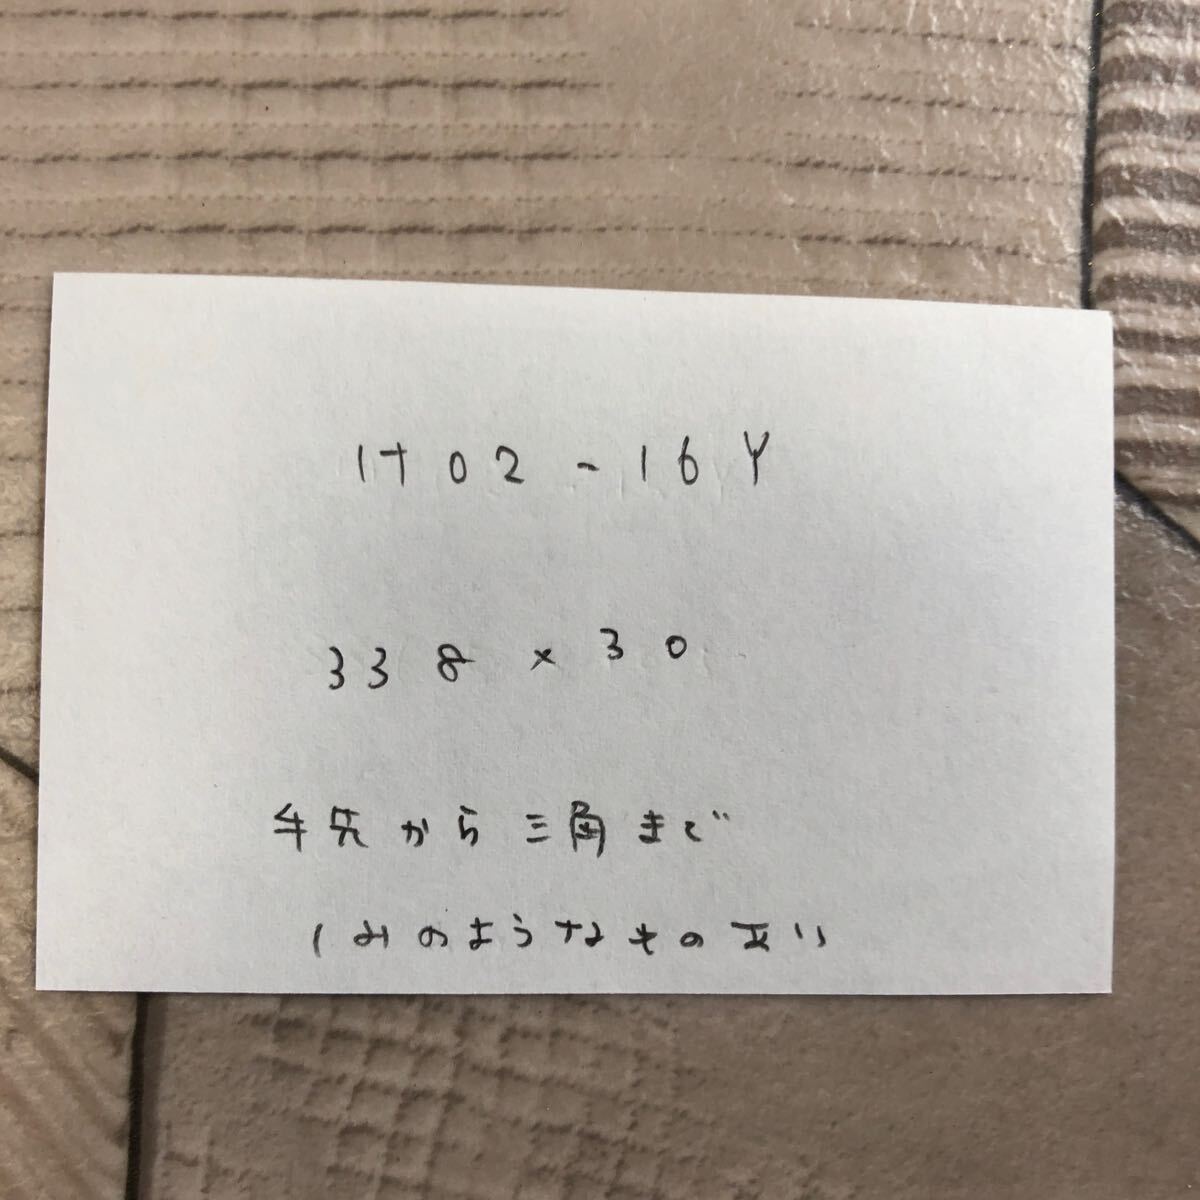 1702-16Y
338×30
手先から三角まで
しみのようなもの有り